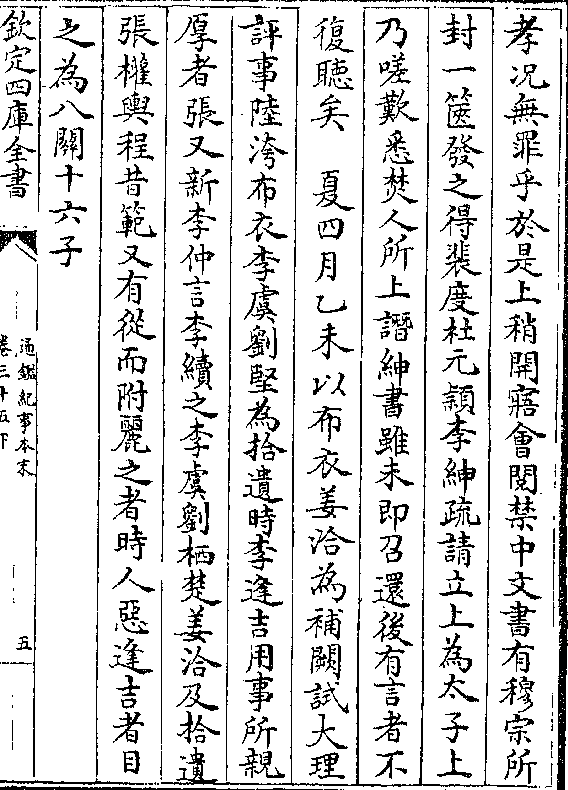 孝况無罪乎於是上稍開寤會閱禁中文書有穆宗所
封一篋發之得裴度杜元穎李紳疏請立上為太子上
乃嗟歎悉焚人所上譖紳書雖未即召還後有言者不
復聽矣　夏四月乙未以布衣姜洽為補闕試大理
評事陸洿布衣李虞劉堅為拾遺時李逢吉用事所親
厚者張又新李仲言李續之李虞劉栖楚姜洽及拾遺
張權輿程昔範又有從而附麗之者時人惡逢吉者目
之為八關十六子
欽定四庫全書
通鑑紀事本末
卷三十五下
五